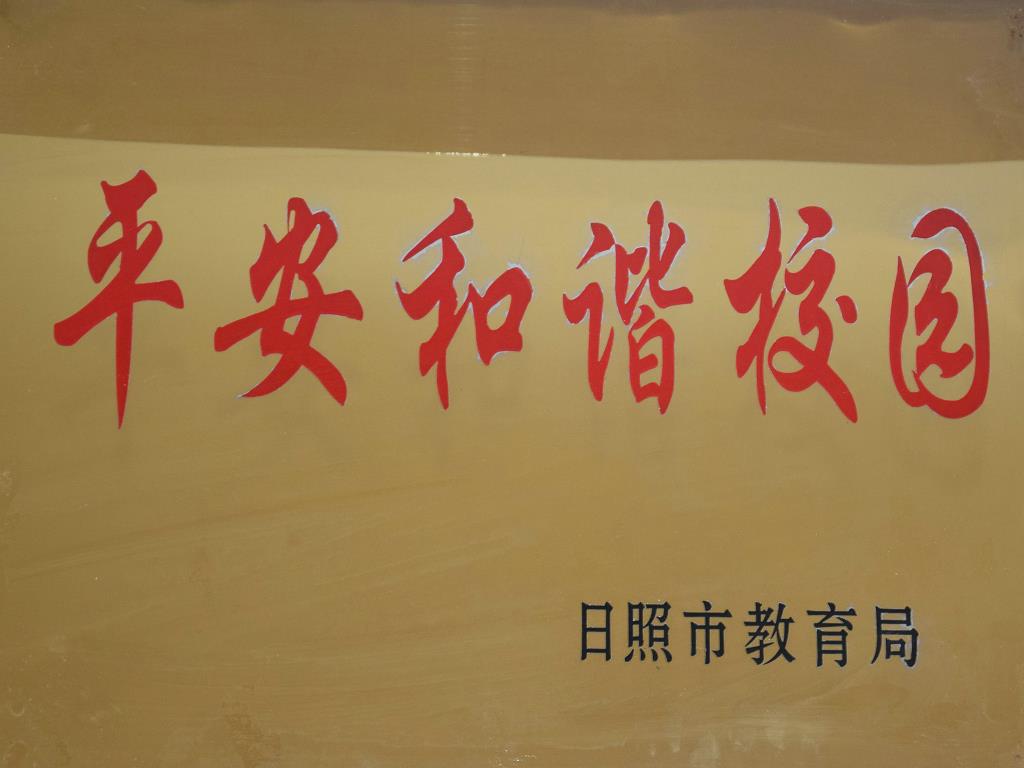 平安和谐校园
日照市教育局